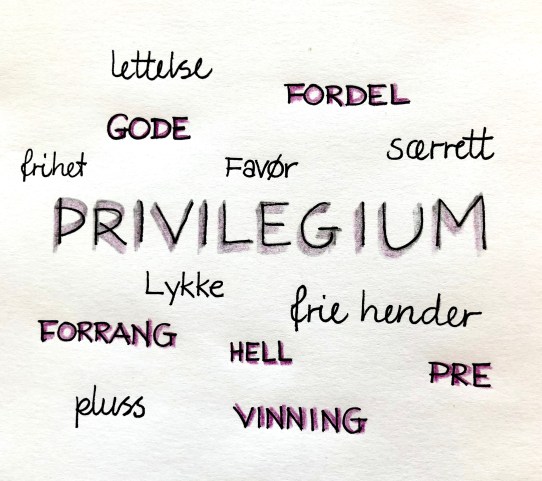 lettelse
FORDEL
GODE
særrett
frihet
Favør
PRIVILEGIUM
Lykke
frie hender
FORRANG
HELL
PRE
pluss
VINNING